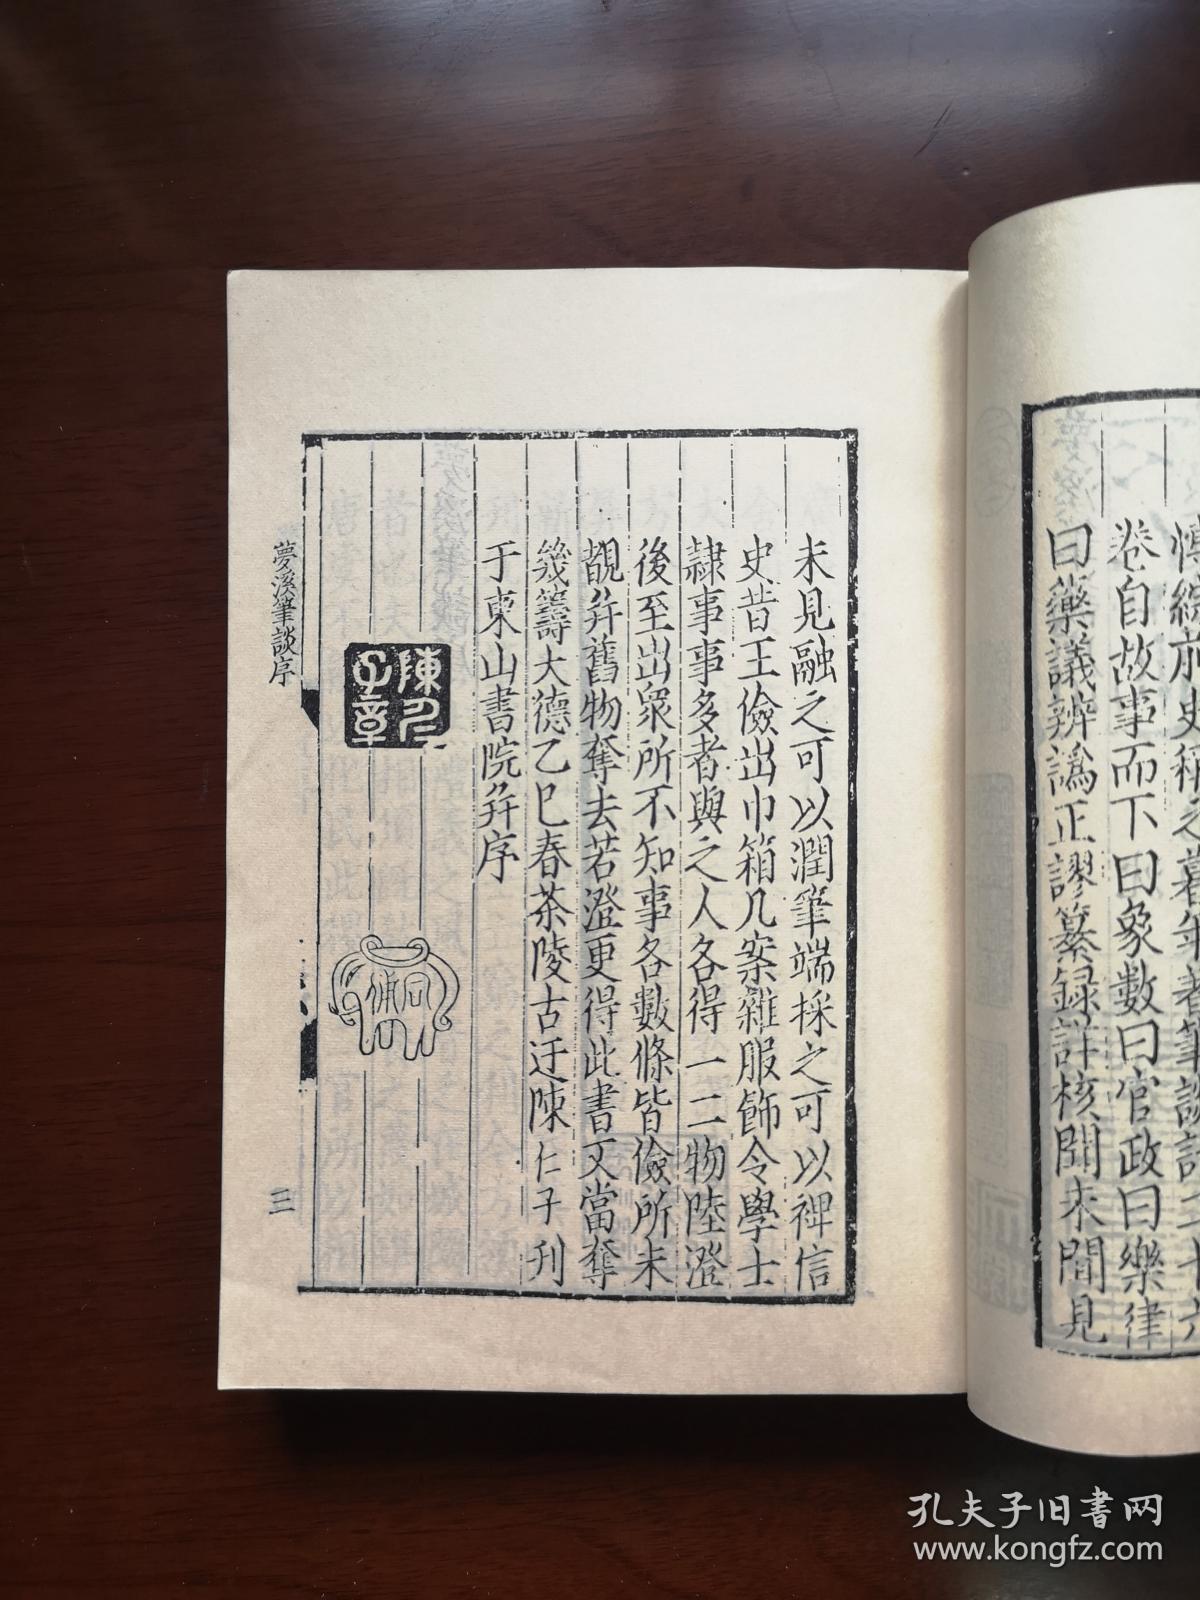 卷自故事而下曰象數曰官政曰樂律
曰藥議辨譌正謬纂録詳核聞未聞見
未見融之可以潤筆端採之可以裨信
史昔王儉出巾箱几案雜服飾令學士
隷事事多者與之人各得一二物陸澄
後至出衆所不知事各數條皆儉所未
覩并舊物奪去若澄更得此書又當奪
幾籌大德乙巳春茶陵古迂陳仁子刊
于東山書院并序
夢溪筆談序
二
孔夫子旧书网
www.kongfz.com